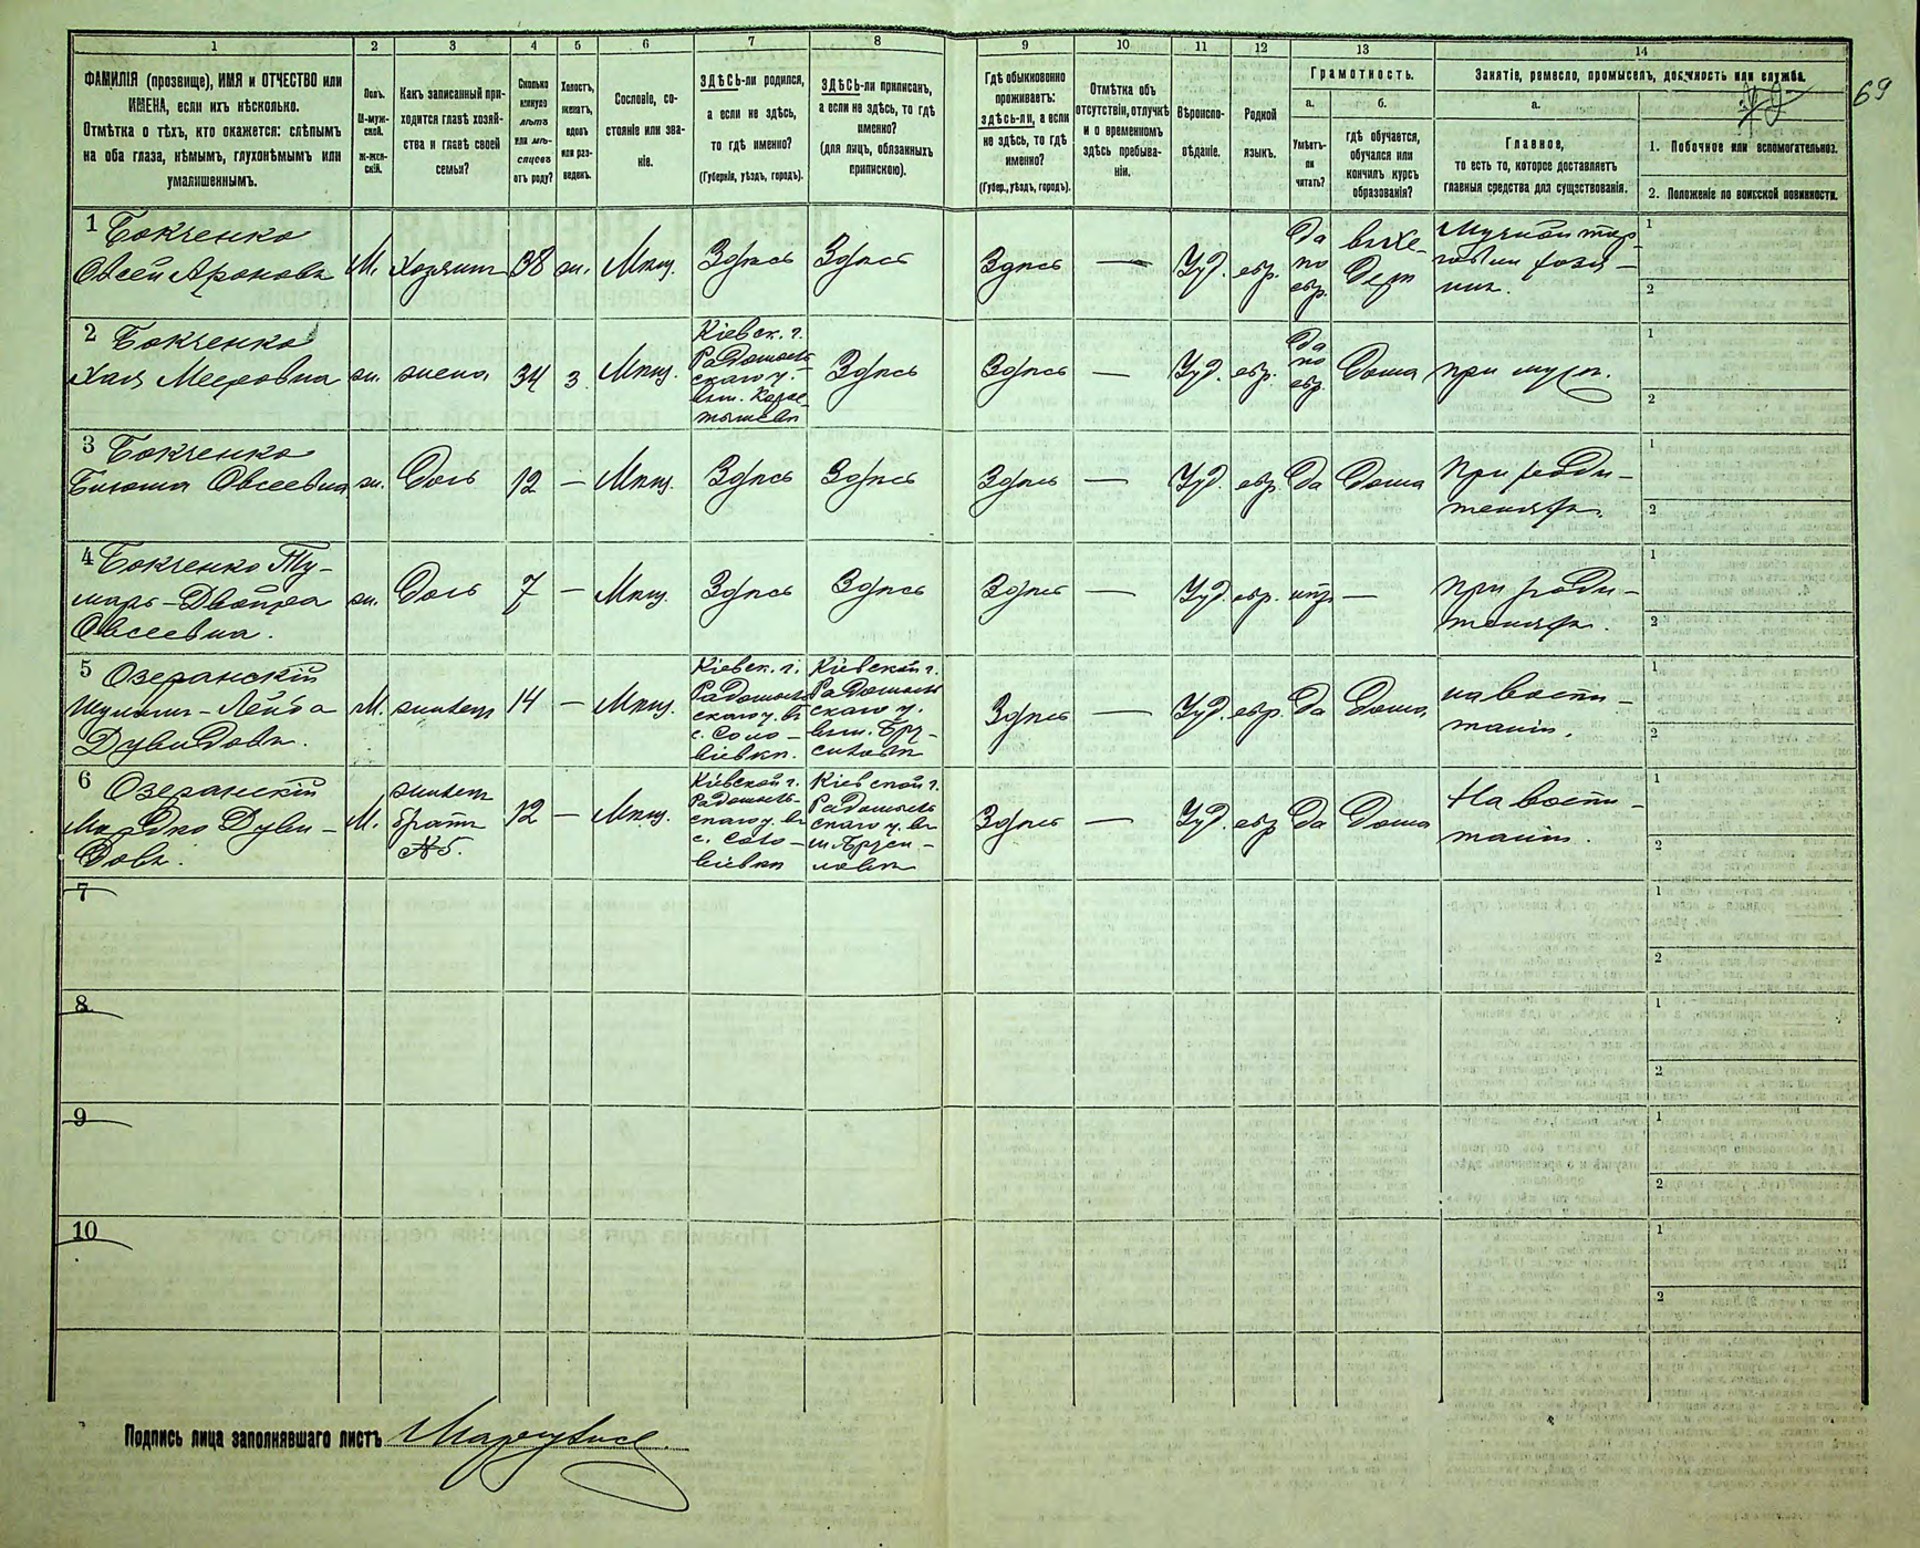 69
1 2 3 4 5 6 7 8 9 10 11 12 13 14
ФАМИЛІЯ (прозвище), ИМЯ и ОТЧЕСТВО или
ИМЕНА, если ихъ нѣсколько.
Отмѣтка о тѣхъ, кто окажется: слѣпымъ
на оба глаза, нѣмымъ, глухонѣмымъ или
умалишеннымъ.
Полъ.
М-муж-
ской.
ж-жен-
скій.
Какъ записанный при-
ходится главѣ хозяй-
ства и главѣ своей
семьи?
Сколько
минуло
лѣтъ
или мѣ-
сяцевъ
отъ роду?
Холостъ,
женатъ,
вдовъ
или раз-
веденъ.
Сословіе, со-
стояніе или зва-
ніе.
ЗДѢСЬ-ли родился,
а если не здѣсь,
то гдѣ именно?
(Губернія, уѣздъ, городъ).
ЗДѢСЬ-ли приписанъ,
а если не здѣсь, то гдѣ
именно?
(для лицъ, обязанныхъ
припискою).
Гдѣ обыкновенно
проживаетъ:
здѣсь-ли, а если
не здѣсь, то гдѣ
именно?
(Губер., уѣздъ, городъ).
Отмѣтка объ
отсутствіи, отлучкѣ
и о временномъ
здѣсь пребыва-
ніи.
Вѣроиспо-
вѣданіе.
Родной
языкъ.
Грамотность.
а.
Умѣетъ-
ли
читать?
б.
гдѣ обучается,
обучался или
кончилъ курсъ
образованія?
Занятіе, ремесло, промыселъ, должность или служба.
а.
Главное,
то есть то, которое доставляетъ
главныя средства для существованія.
1. Побочное или вспомогательное.
2. Положеніе по воинской повинности.
1 Бокченко
Овсей Ароновъ
М. Хозяинъ 38 ж. Мѣщ. Здѣсь Здѣсь Здѣсь — Іуд. евр.
Да
по
евр.
въ хе-
дерѣ
Мучной тор-
говли хозя-
инъ.
1
2
2 Бокченко
Хая Мееровна
ж. жена 34 з. Мѣщ.
Кіевск. г.
Радомысль-
скаго у.
въ м. Коро-
стышевѣ
Здѣсь Здѣсь — Іуд. евр.
Да
по
евр.
Дома при мужѣ.
1
2
3 Бокченко
Овсеевна ж. Дочь 12 — Мѣщ. Здѣсь Здѣсь Здѣсь — Іуд. евр. Да Дома
При роди-
теляхъ.
1
2
4 Бокченко Ту-
марь-Двойра
Овсеевна.
ж. Дочь 7 — Мѣщ. Здѣсь Здѣсь Здѣсь — Іуд. евр. нѣтъ —
При роди-
теляхъ.
1
2
5 Озеранскій
Шулимъ-Лейба
Дувидовъ.
М. жилецъ 14 — Мѣщ.
Кіевск. г.
Радомысль-
скаго у. въ
с. Соло-
віевкѣ.
Кіевской г.
Радомысль
скаго у.
въ м. Бру-
силовѣ
Здѣсь — Іуд. евр. Да Дома
на воспи-
таніи.
1
2
6 Озеранскій
Мордко Дуви-
довъ.
М.
жилецъ
братъ
№ 5.
12 — Мѣщ.
Кіевской г.
Радомысль-
скаго у. въ
с. Соло-
віевкѣ
Кіевской г.
Радомысль
скаго у. въ
м. Бруси-
ловѣ
Здѣсь — Іуд. евр. Да Дома
На воспи-
таніи.
1
2
7
1
2
8
1
2
9
1
2
10
1
2
Подпись лица заполнявшаго листъ